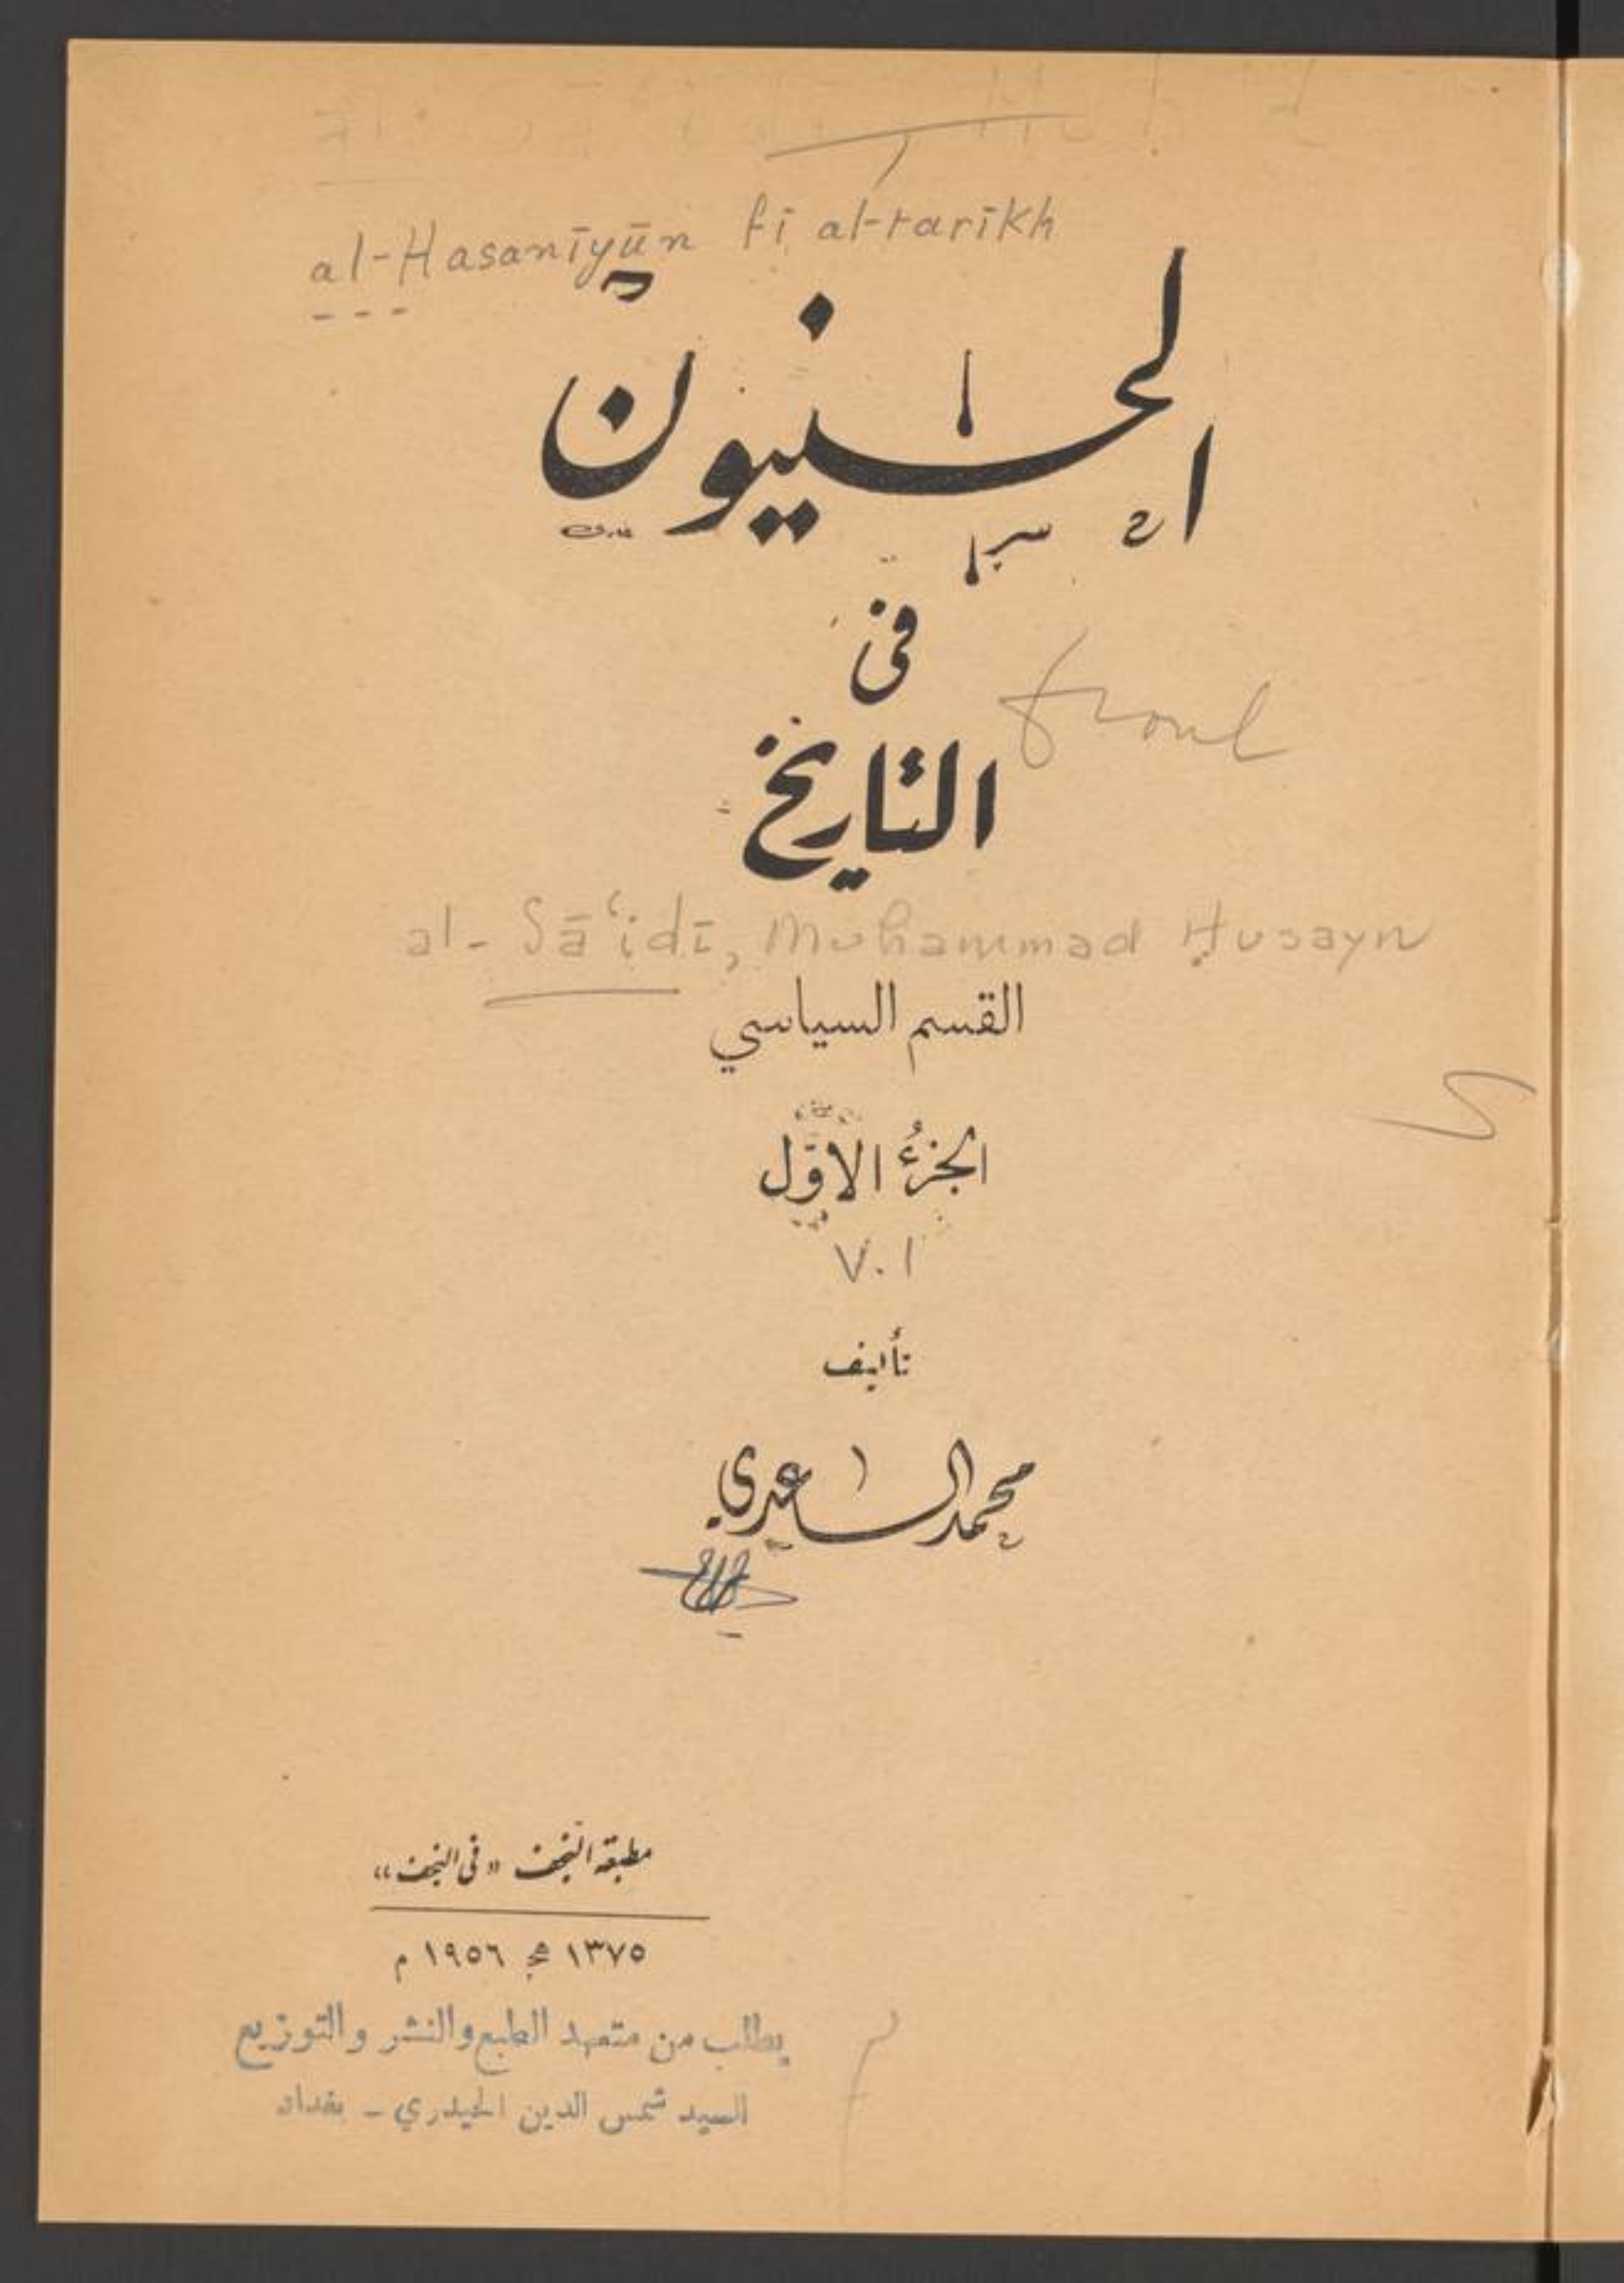 al-Hasanīyūn fī al-tarīkh
الحسنيون
فى
التاريخ
al-Sāʿidī, Muhammad Ḥusayn
القسم السياسي
الجزءُ الاوّل
V. 1
تأليف
محمد الساعدي
مطبعة النجف «في النجف»
١٣٧٥ هج ١٩٥٦ م
يطلب من متعهد الطبع والنشر والتوزيع
السيد شمس الدين الحيدري - بغداد